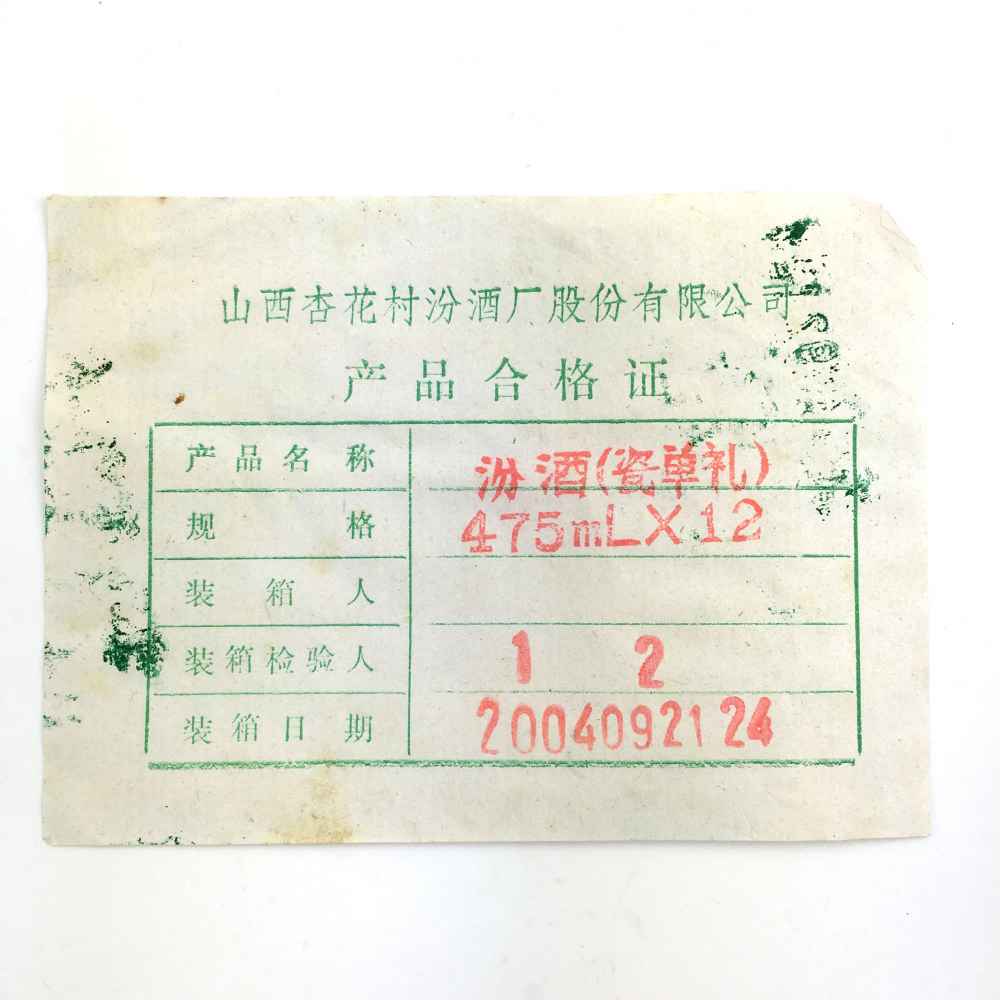 山西杏花村汾酒厂股份有限公司
产品合格证
产品名称 汾酒(瓷单礼)
规格 475mL×12
装箱人
装箱检验人 1 2
装箱日期 20040921 24